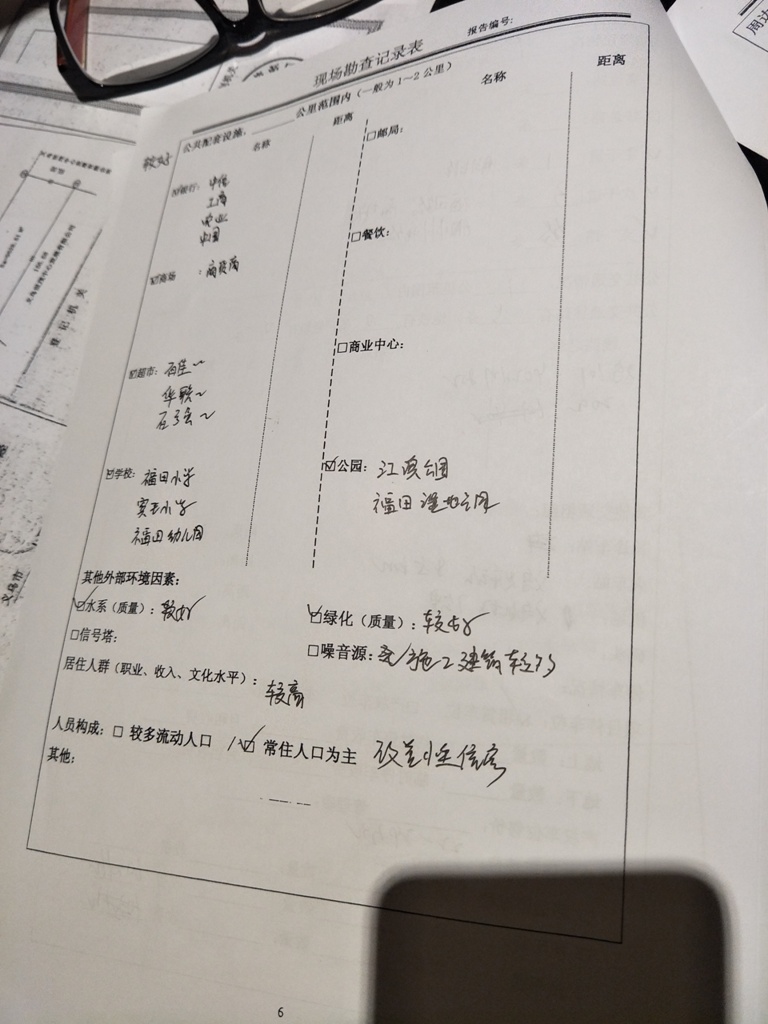 报告编号:
现场勘查记录表
公共配套设施, ______ 公里范围内（一般为 1~2 公里）
较好
名称 距离 名称 距离
☑银行: 中信
工商
农业
中国
□邮局:
□餐饮:
☑商场:
□商业中心:
☑超市:
华联~
☑学校: 福田小学
实验小学
福田幼儿园
☑公园: 江滨公园
福田湿地公园
其他外部环境因素:
☑水系（质量）: 较好
☑绿化（质量）: 较好
□信号塔:
□噪音源: 施工建筑
居住人群（职业、收入、文化水平）:
较高
人员构成: □ 较多流动人口 / ☑ 常住人口为主 改善性住房
其他:
6
登记机关
义乌市